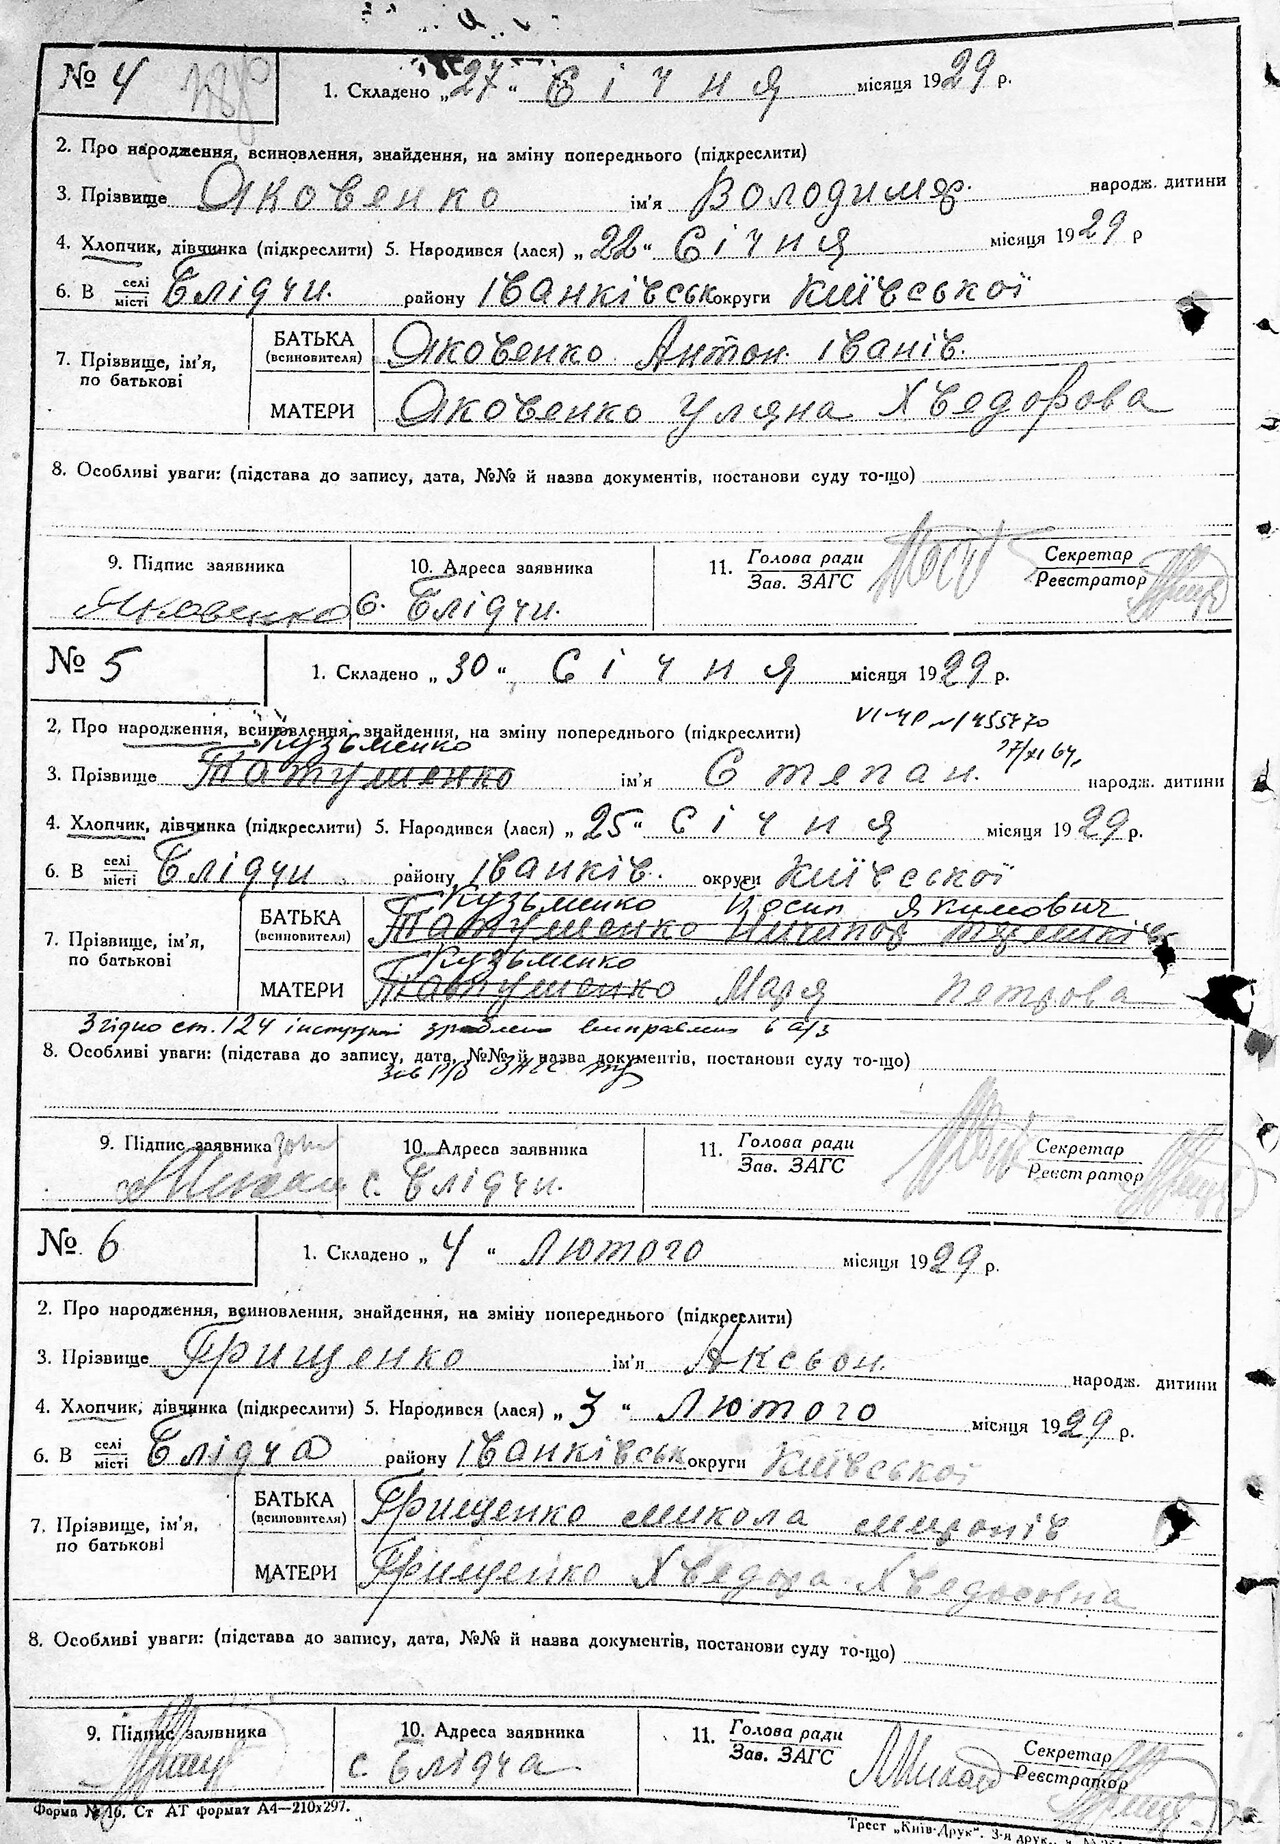 № 4
1. Складено „27“ Січня місяця 1929 р.
2. Про народження, всиновлення, знайдення, на зміну попереднього (підкреслити)
3. Прізвище Яковенко ім'я Володимяр. народж. дитини
4. Хлопчик, дівчинка (підкреслити) 5. Народився (лася) „22“ Січня місяця 1929 р
6. В селі місті Блідчи. району Іванківськ округи Київської
7. Прізвище, ім'я, по батькові
БАТЬКА (всиновителя) Яковенко Антон. Іванів.
МАТЕРИ Яковенко Уляна Хведорова
8. Особливі уваги: (підстава до запису, дата, №№ й назва документів, постанови суду то-що)
9. Підпис заявника 10. Адреса заявника 11. Голова ради Зав. ЗАГС Секретар Реєстратор
Яковенко с. Блідчи.
№ 5
1. Складено „30“ Січня місяця 1929 р.
2, Про народження, всиновлення, знайдення, на зміну попереднього (підкреслити)
Кузьменко
3. Прізвище Татушенко ім'я Степан. народж. дитини
4. Хлопчик, дівчинка (підкреслити) 5. Народився (лася) „25“ Січня місяця 1929 р.
6. В селі місті Блідчи району Іванків. округи Київської
Кузьменко Йосип Якимович
7. Прізвище, ім'я, по батькові
БАТЬКА (всиновителя) Татушенко
Кузьменко
МАТЕРИ Татушенко Марія Петрова
Згідно ст. 124 інструкції зроблено виправлення в а/з
8. Особливі уваги: (підстава до запису, дата, №№ й назва документів, постанови суду то-що)
ЗАГС
9. Підпис заявника 10. Адреса заявника 11. Голова ради Зав. ЗАГС Секретар Реєстратор
с. Блідчи.
№ 6
1. Складено „4“ Лютого місяця 1929 р.
2. Про народження, всиновлення, знайдення, на зміну попереднього (підкреслити)
3. Прізвище Грищенко ім'я Аксьон. народж. дитини
4. Хлопчик, дівчинка (підкреслити) 5. Народився (лася) „3“ Лютого місяця 1929 р.
6. В селі місті Блідча району Іванківськ округи Київської
7. Прізвище, ім'я, по батькові
БАТЬКА (всиновителя) Грищенко Микола Миронів
МАТЕРИ Грищенко Хведора Хведосовна
8. Особливі уваги: (підстава до запису, дата, №№ й назва документів, постанови суду то-що)
9. Підпис заявника 10. Адреса заявника 11. Голова ради Зав. ЗАГС Секретар Реєстратор
с. Блідча
Форма № 16. Ст АТ формат А4—210x297.
Трест „Київ-Друк“. 3-я друк.